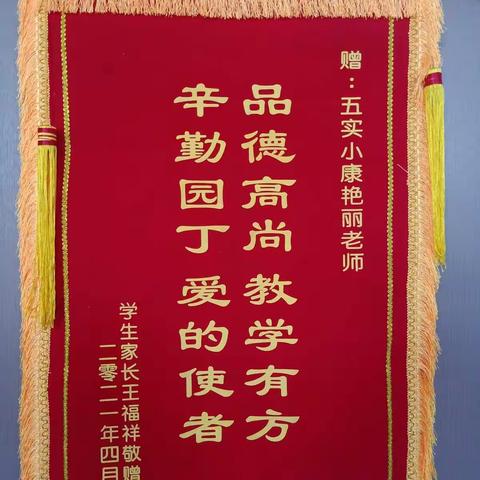 赠：五实小康艳丽老师
品德高尚 教学有方
辛勤园丁 爱的使者
学生家长王福祥敬赠
二零二一年四月